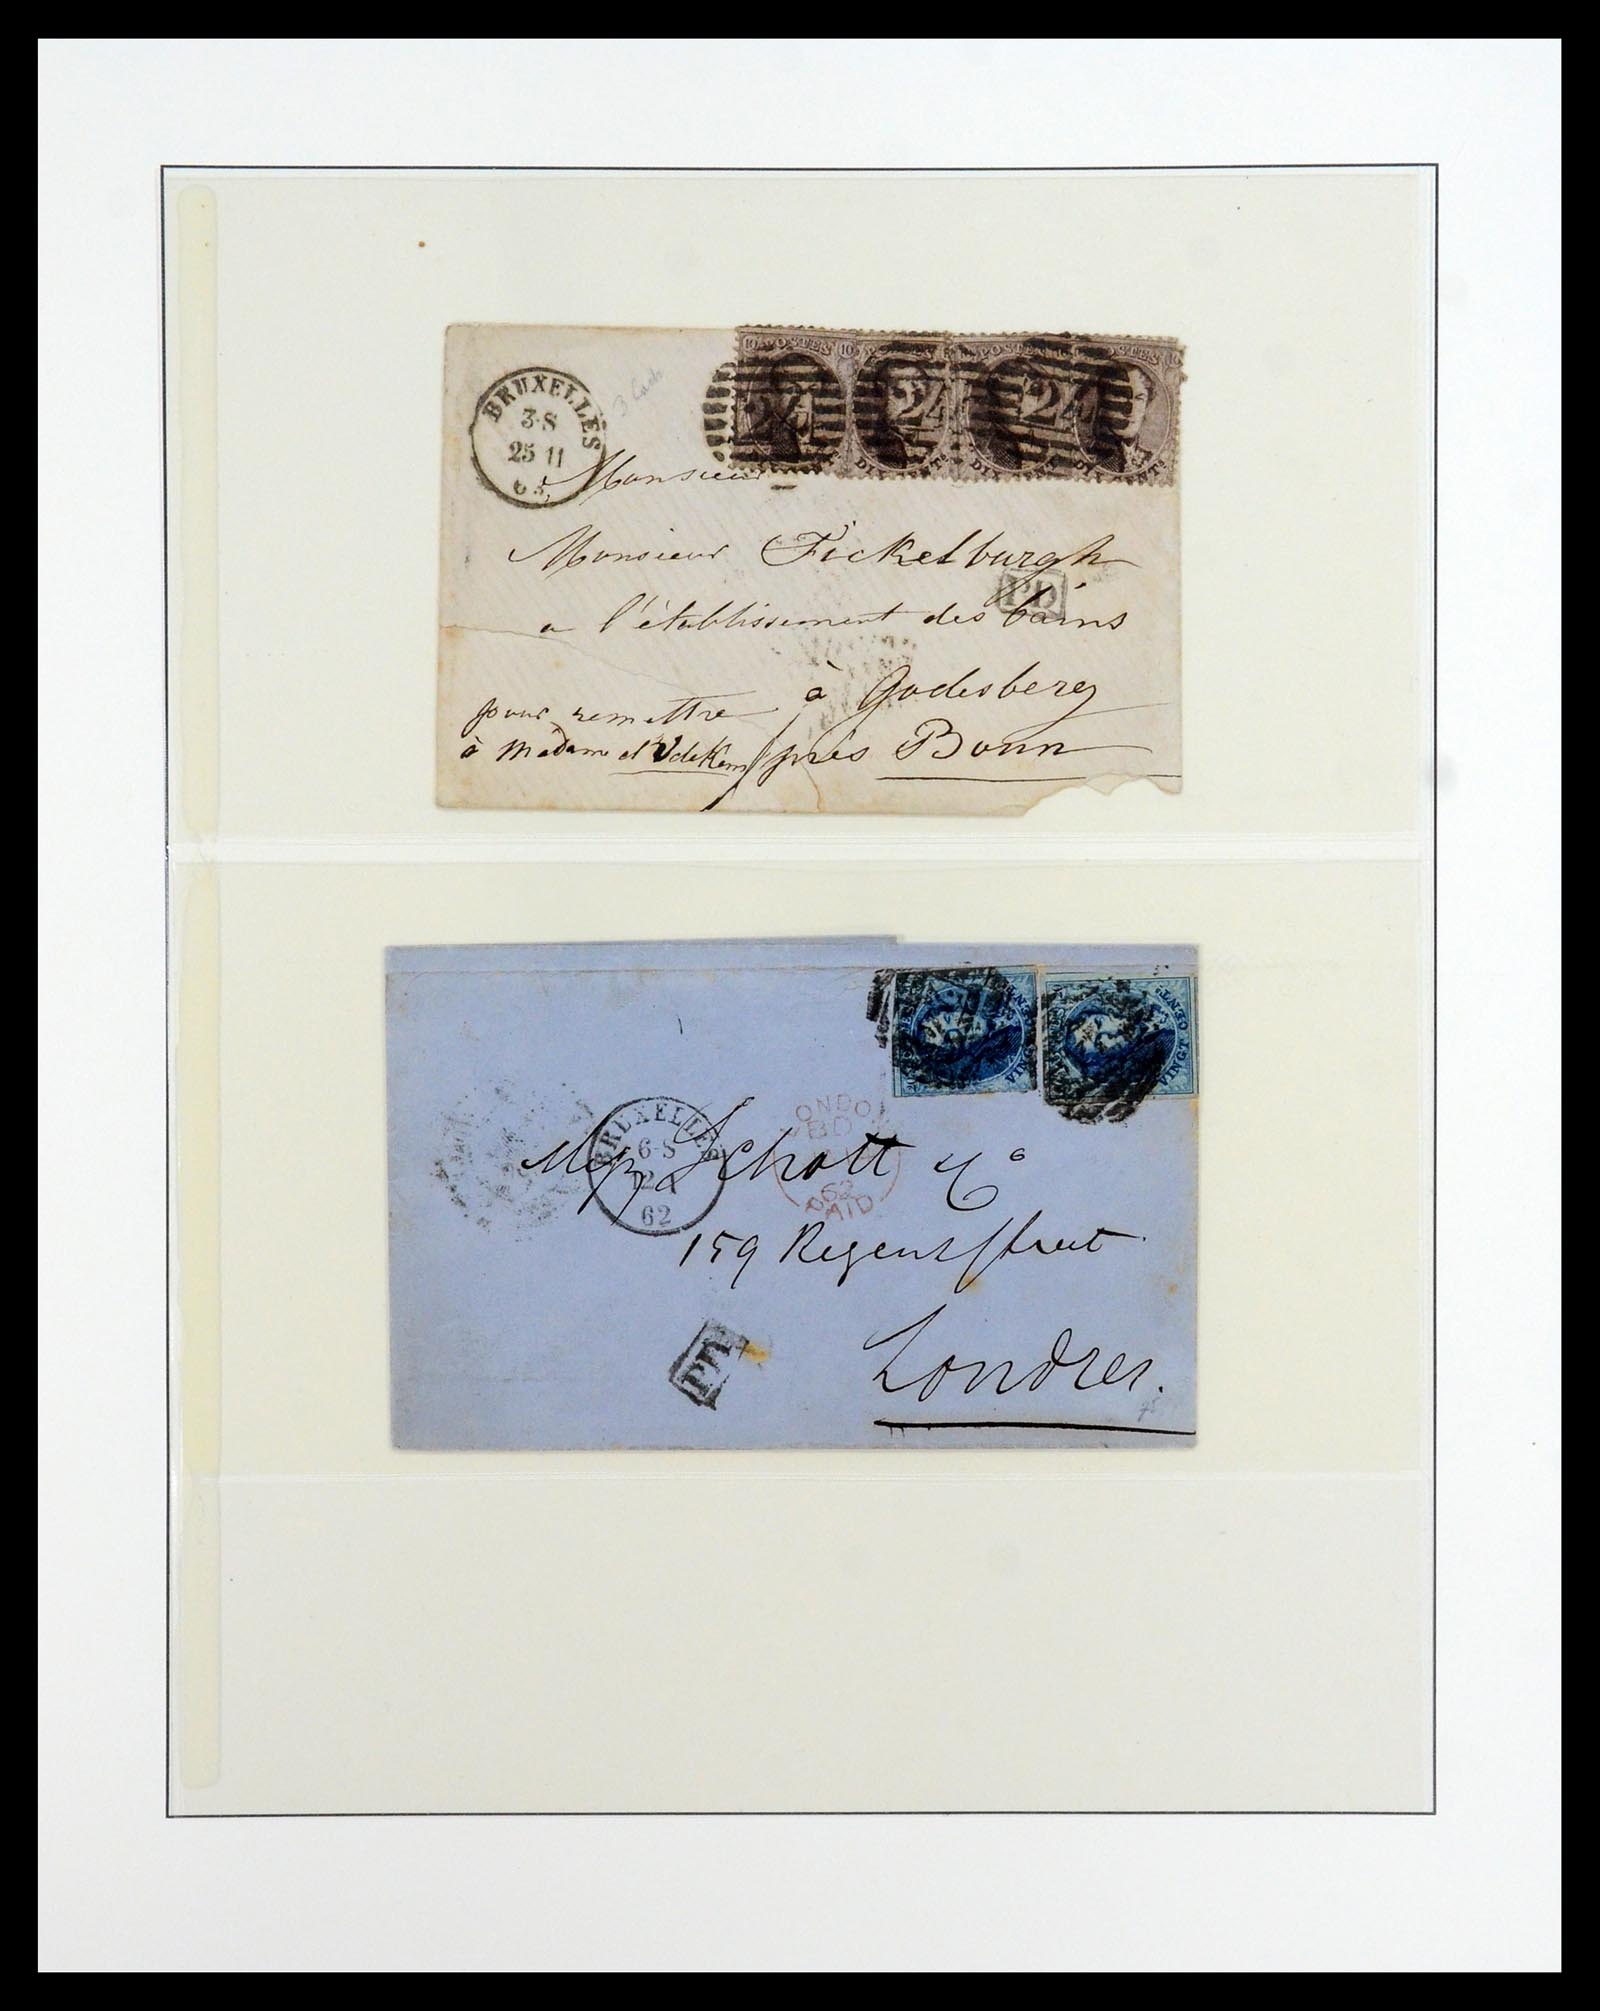 BRUXELLES
3·S
25 11
63
3 Cach
10 POSTES 10 POSTES POSTES POSTES 10
24 24
DIX CENTS
DIX CENTS
Monsieur
Monsieur Fickelburgh
PD
a l'établissement des bains
à Godesberg
pour remettre
à Madame
près Bonn
VINGT CENTS
VINGT CENTS
BRUXELLES
6·S
12
62
LONDON
BD
62
PAID
Schott & Co
159 Regentstreet
PD
Londres.